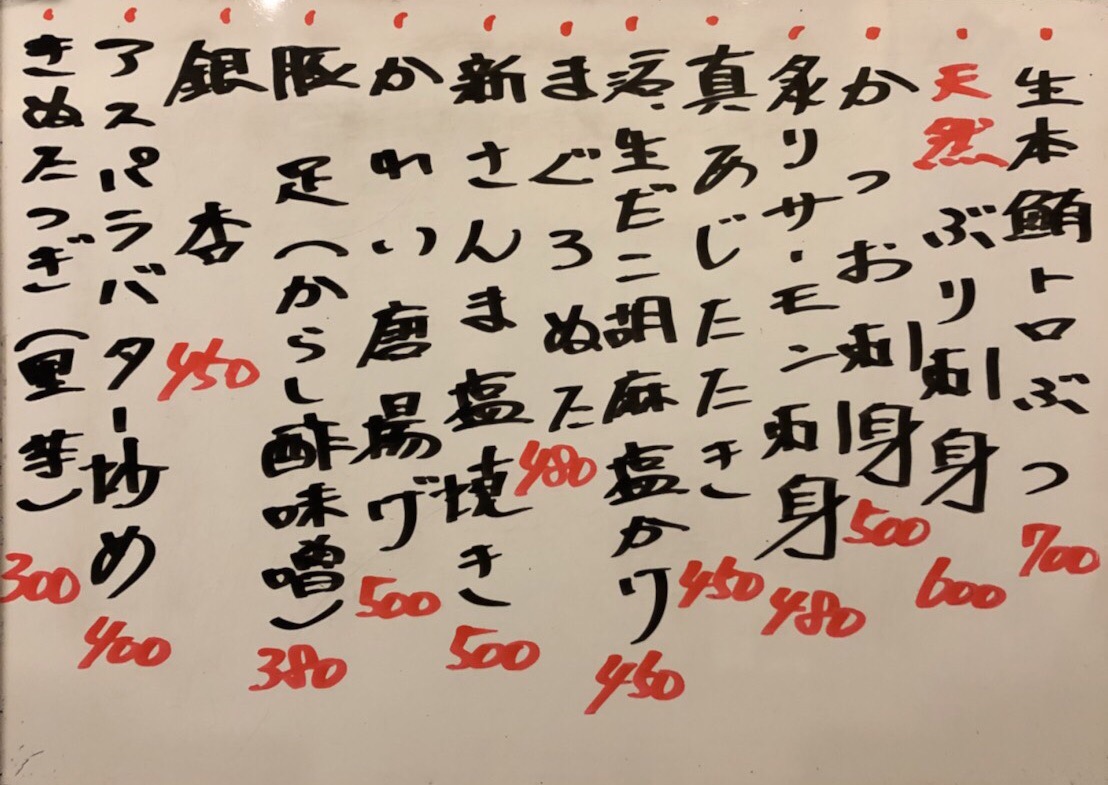 生本鮪トロぶつ 700
天然ぶり刺身 600
かつお刺身 500
炙りサーモン刺身 480
真あじたたき 450
活生だこ胡麻塩かけ 450
まぐろぬた 480
新さんま塩焼き 500
かれい唐揚げ 500
豚足(からし酢味噌) 380
銀杏 450
アスパラバター炒め 400
きぬたつぎ(里芋) 300